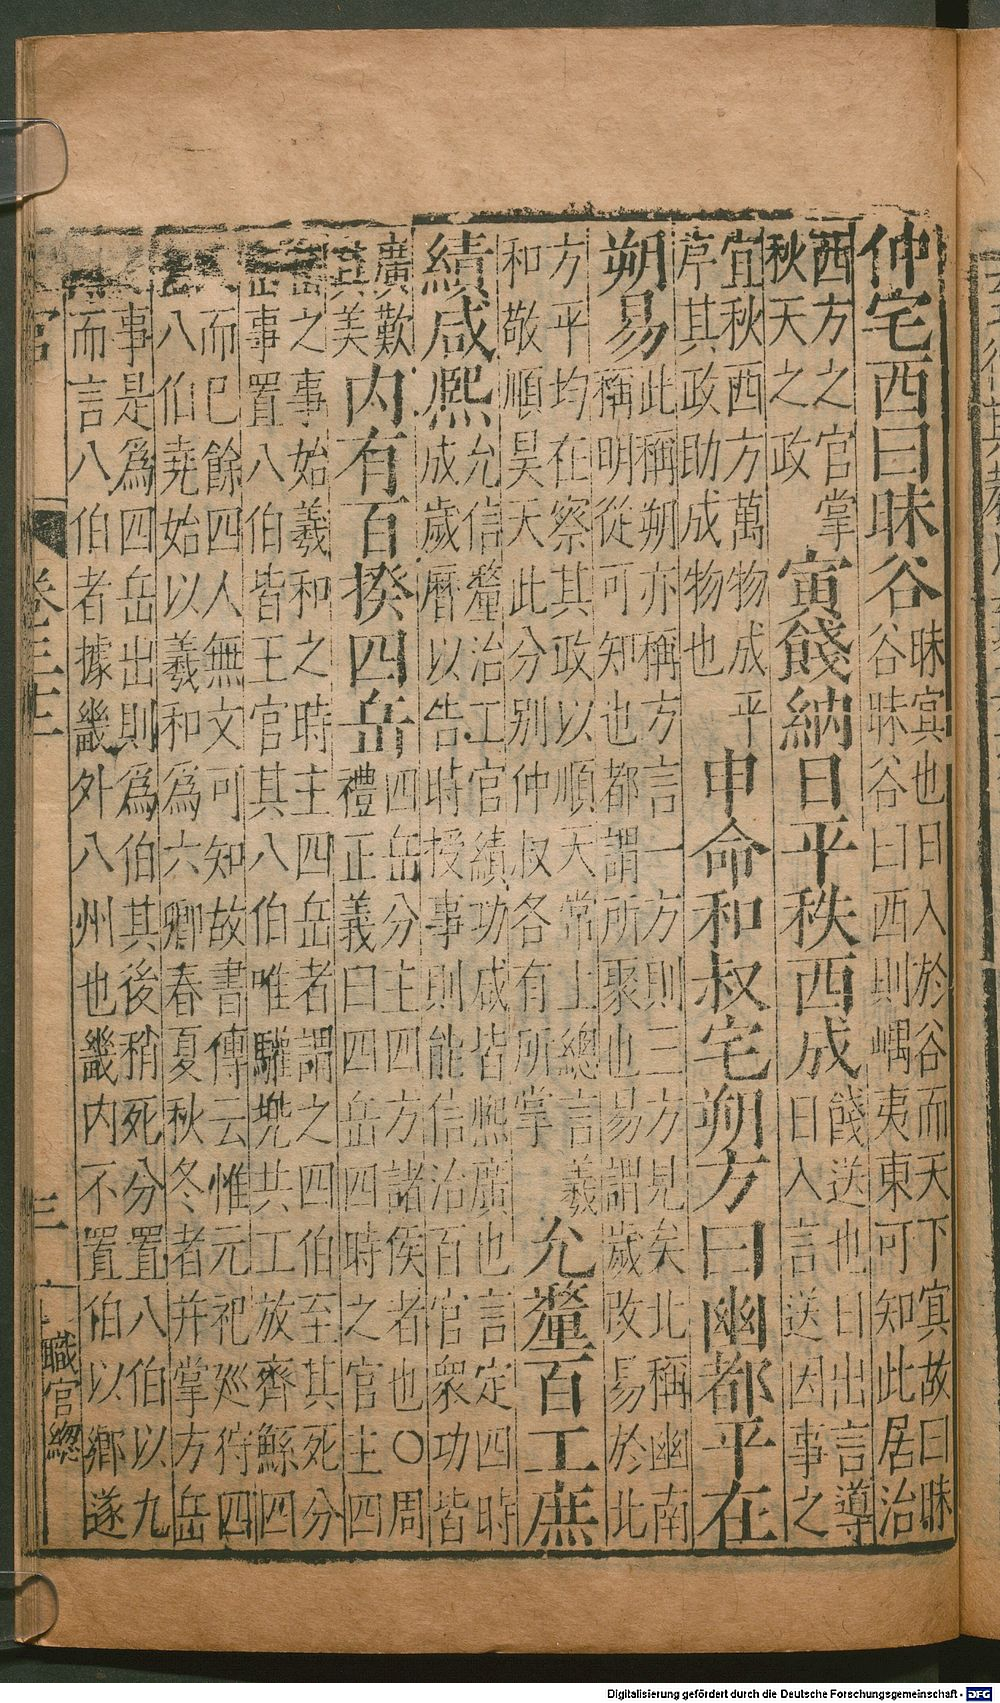 仲宅西曰昧谷昧㝠也日入於谷而天下㝠故曰昧
谷昧谷曰西則嵎夷東可知此居治
西方之官掌
秋天之政
寅餞納日平秩西成餞送也日出言導
日入言送因事之
宜秋西方萬物成平
序其政助成物也
申命和叔宅朔方曰幽都平在
朔易此稱朔亦稱方言一方則三方見矣北稱幽南
稱明從可知也都謂所聚也易謂歲改易於北
方平均在察其政以順天常上總言羲
和敬順昊天此分别仲叔各有所掌
允釐百工庶
績咸熙允信釐治工官績功咸皆熙廣也言定四時
成歲曆以告時授事則能信治百官衆功皆
廣歎
其美
内有百揆四岳四岳分主四方諸侯者也〇周
禮正義曰四岳四時之官主四
岳之事始羲和之時主四岳者謂之四伯至其死分
岳事置八伯皆王官其八伯唯驩兠共工放齊鯀四
而巳餘四人無文可知故書傳云惟元祀廵狩四
八伯堯始以羲和爲六卿春夏秋冬者并掌方岳
事是爲四岳出則爲伯其後稍死分置八伯以九
而言八伯者據畿外八州也畿内不置伯以鄉遂
官
三
職官總
Digitalisierung gefördert durch die Deutsche Forschungsgemeinschaft - DFG